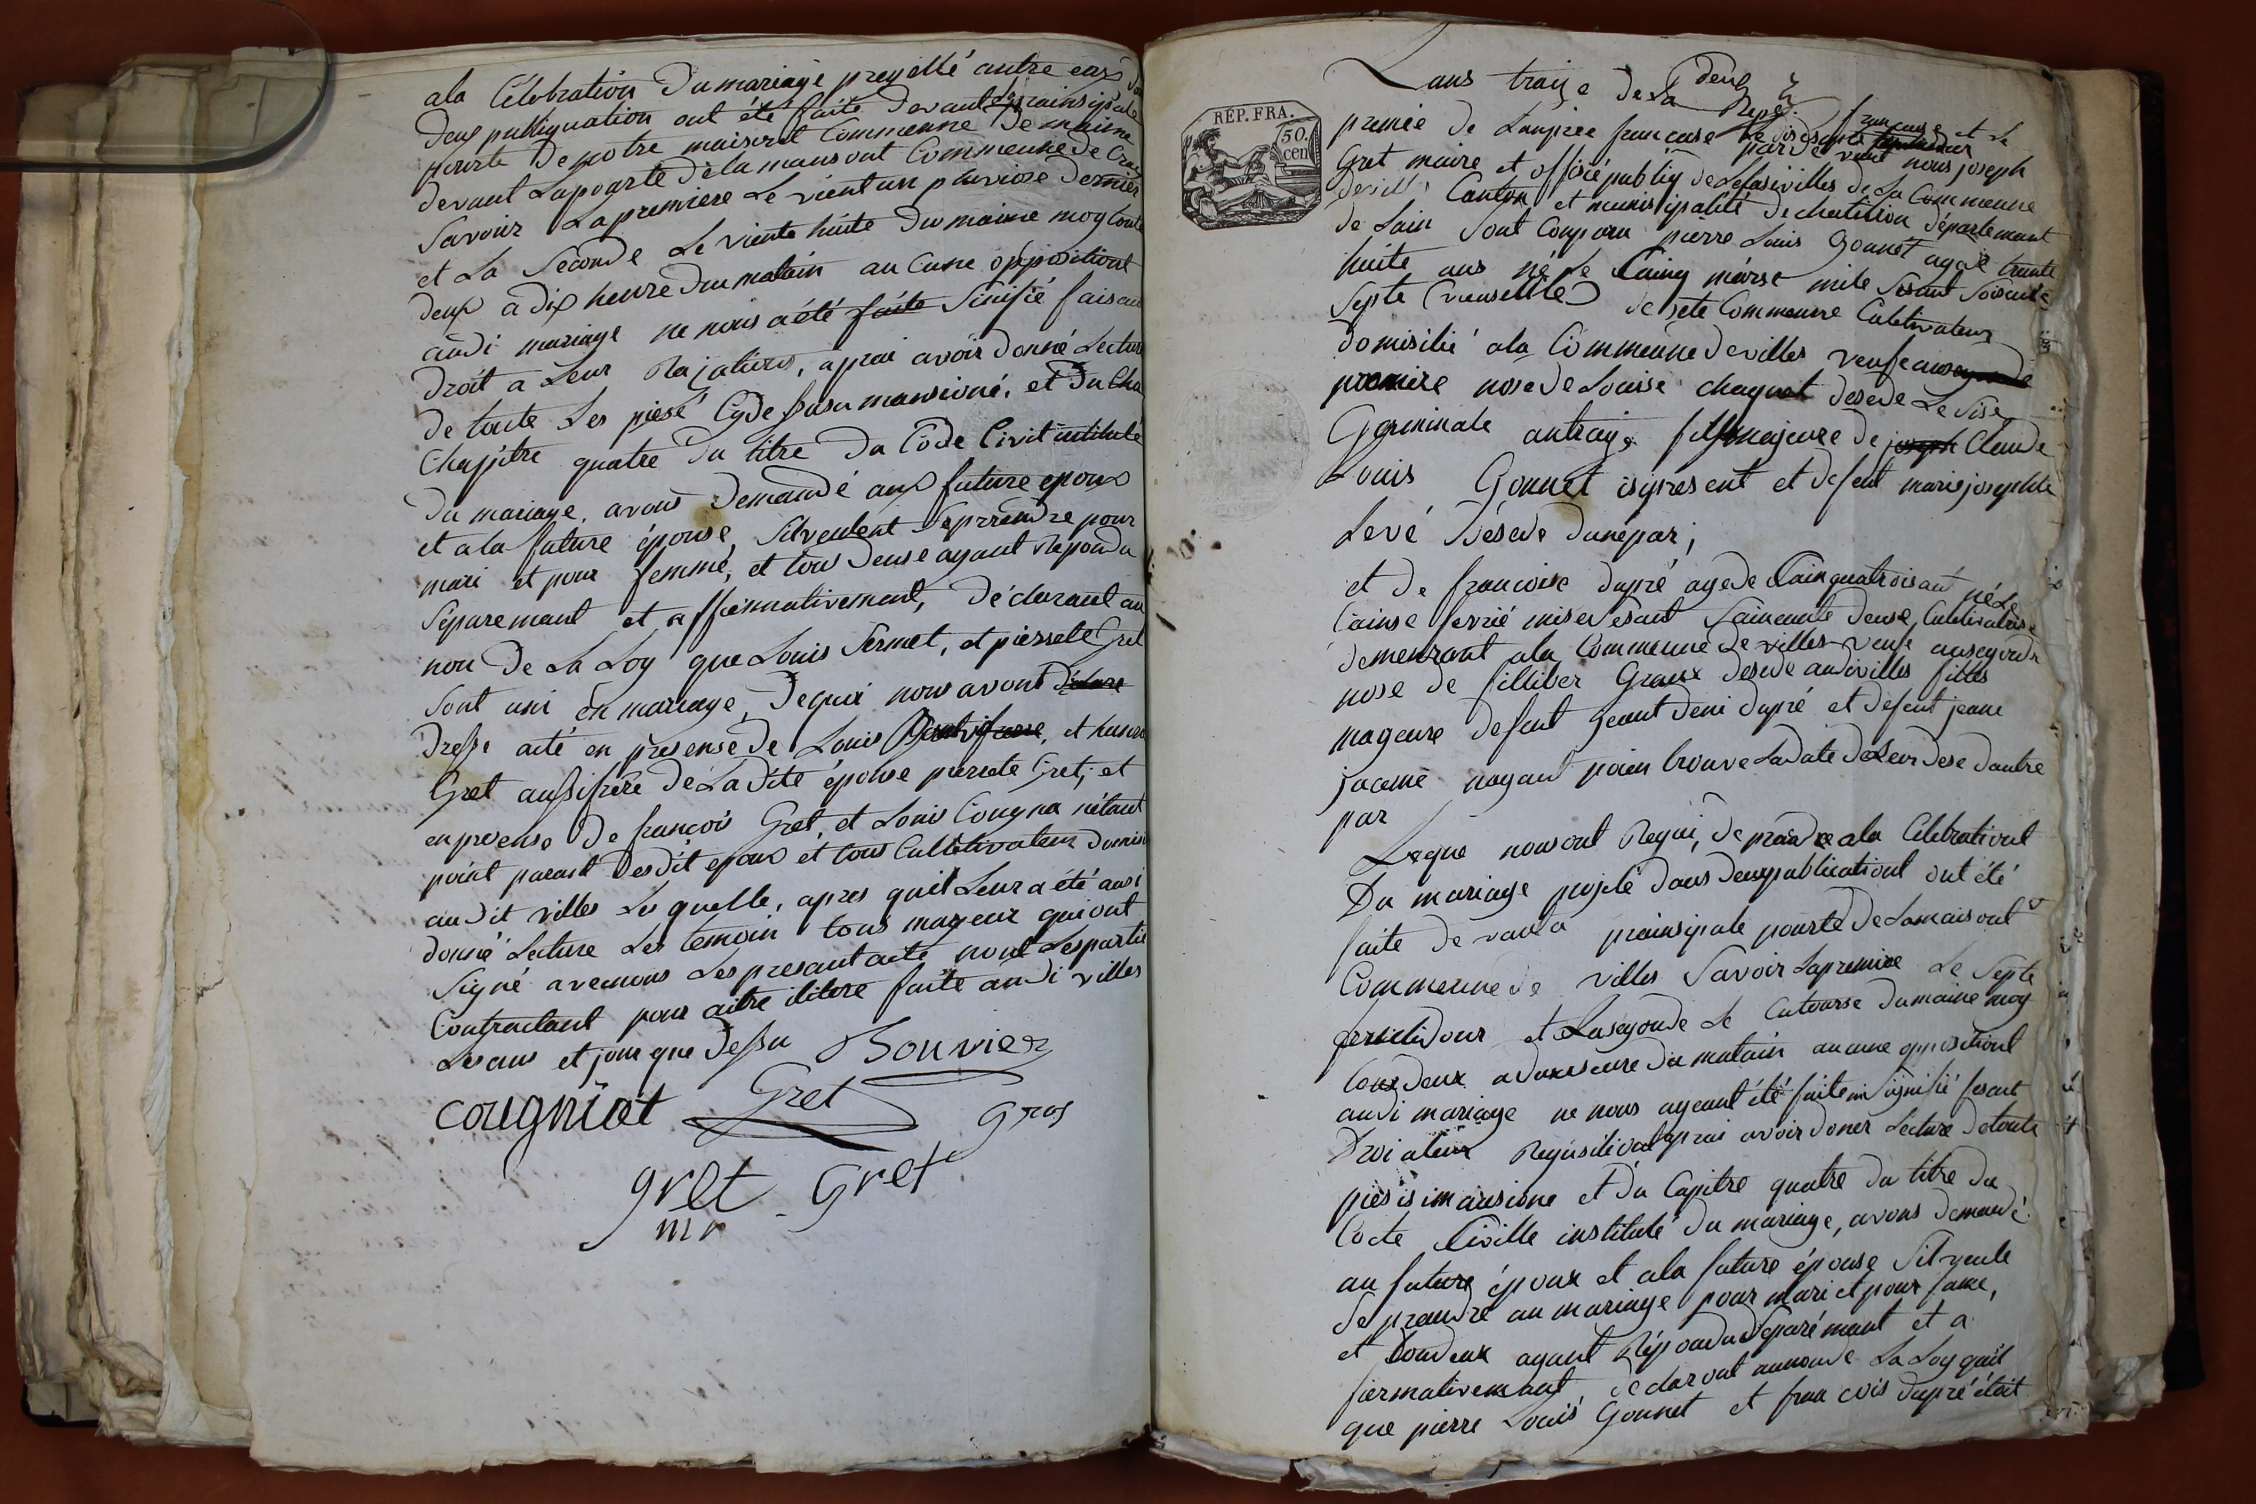 ala Célébration du mariage projetté autre eux
deux publiquation ont été faite devant prainsipale
pourte de notre maisont Commenne de maime
devant lapoarte de la maisont Commeune de
Savoir la premiere le vient un pluviose dernier
et la Seconde le viente huite du maime moy toute
deux a dix heure du matain au cune oppositiont
audi mariage ne nous a été Sinifié faisant
droit a leur Rajaturs, aprai avoir donné Lecture
de toute Les piese Cy de ssus mansioné, et du
Chapitre quatre du titre du Code Civil intitulé
du mariage, avons demandé aux future epoux
et a la future épouse Silveulent Seprendre pour
mari et pour femme, et tous deuse ayant repondu
Séparemant et affirmativement, déclarant au
non de La Loy que Louis Sermet, et pierrete Gret
Sont uni en mariage, dequoi nous avont
dressé acté en présense de Louis et
Gret aussi frère de la dite épouse pierrete Gret, et
en presense de françois Gret, et Louis Cougna nétant
point parant desdit epoux et tous Cultivateur
au dit villes les quelle, apres quil Leur a été ausi
donné Lecture Les temoin tous mageur qui ont
Signé avecnous Les presant acte nont Lespartie
Contractant pour aitre ilitere faite au di villes
Les ans et jour que dessu Bouvier
cougniat Gret gros
gret Gret
mr
Lans traize de la deux Repe
RÉP. FRA.
50. cen
premie de Lanpire francaise par devant nous joseph
Gret maire et offisié publiq de Letasivilles de La Commeune
de villes Canton et municipalité de chatillon département
de Lain Sont Conparu pierre Louis Gonnet agé de trante
huite ans né le Cainq marse mile Sesant Soisante
Septe Cultivateur
domisilié ala Commeune de villes veufe
premire nose de Louise chaquet desede Le Sise
Germinale antraize fils majeure de Claude
Louis Gonnet isy present et defent marie josephte
Levé Désede dunepar;
et de francoise dupré agede Cainquatroisant né
Cainse fevrié mise Sesant Cainquante deuse Cultivatrise
demeurant ala Commeune de villes veuse ansegonde
nose de filliber Graux desede audivilles filles
mageure defent Geant deni dupré et defent jeane
jaceme nayant poien trouve Ladate deLeur dese dautre
par
Leque nous ont Requi, de proseder ala Celebrationt
Du mariage projeté dans deuxpublicationt ont été
faite de vant a prainsipale pourte de Lamaisont
Commeune de villes Savoir Lapremiee Le Septe
fructidour et Laseyonde Le Catourse dumaime moy
tous deux a douseure du matain aucune oppositiont
audi mariage ne nous ayeant été faite ni Signifié fesant
Droi a leur Requisitiont aprai avoir doner Lecture de toute
piés is imansione et du Capitre quatre du titre du
Cocte Civille institulé du mariage, avons demandé
au future époux et ala future épouse Sil veule
Se prandre au mariage pour mari et pour fame,
et tous deux ayant Répondu Séparémant et a
fiermativemant, declaront aunon de La Loy quil
que pierre Louis Gonnet et francois dupré étoit